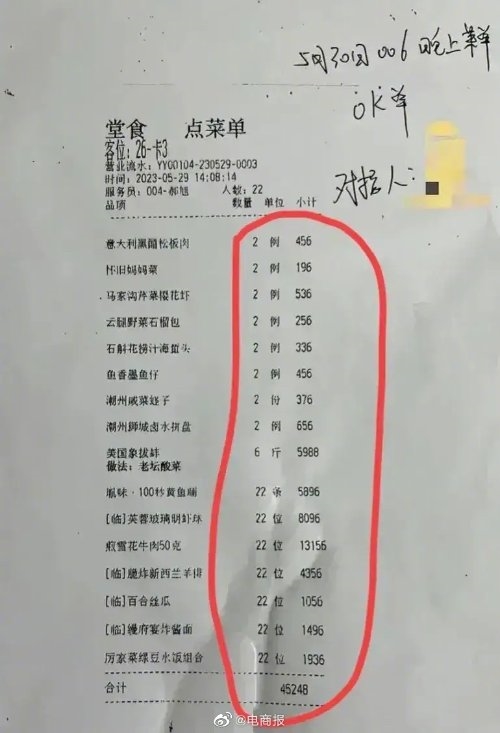 5月30日006 晚上菜单
OK单
对接人:
堂食 点菜单
客位: 26-卡3
营业流水: YY00104-230529-0003
时间: 2023-05-29 14:08:14
服务员: 004-郝旭 人数: 22
品项 数量 单位 小计
意大利黑醋松板肉 2 例 456
怀旧妈妈菜 2 例 196
马家沟芹菜樱花虾 2 例 536
云腿野菜石榴包 2 例 256
石斛花捞汁海蜇头 2 例 336
鱼香墨鱼仔 2 例 456
潮州咸菜蛏子 2 份 376
潮州狮城卤水拼盘 2 例 656
美国象拔蚌 6 斤 5988
做法: 老坛酸菜
100秒黄鱼 22 条 5896
[临]芙蓉玻璃明虾球 22 位 8096
煎雪花牛肉50克 22 位 13156
[临]脆炸新西兰羊排 22 位 4356
[临]百合丝瓜 22 位 1056
[临]馒府宴炸酱面 22 位 1496
厉家菜绿豆水饭组合 22 位 1936
合计 45248
@电商报